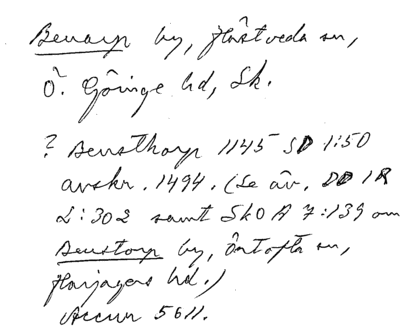 Benarp by, Hästveda sn,
Ö. Göinge hd, Sk.
? Bensthorp 1145 SD 1:50
avskr. 1494. (Se äv. DD 1R
2:302 samt SkO A 7:139 om
Benstorp by, Örtofta sn,
Harjagers hd.)
Accur 5611.